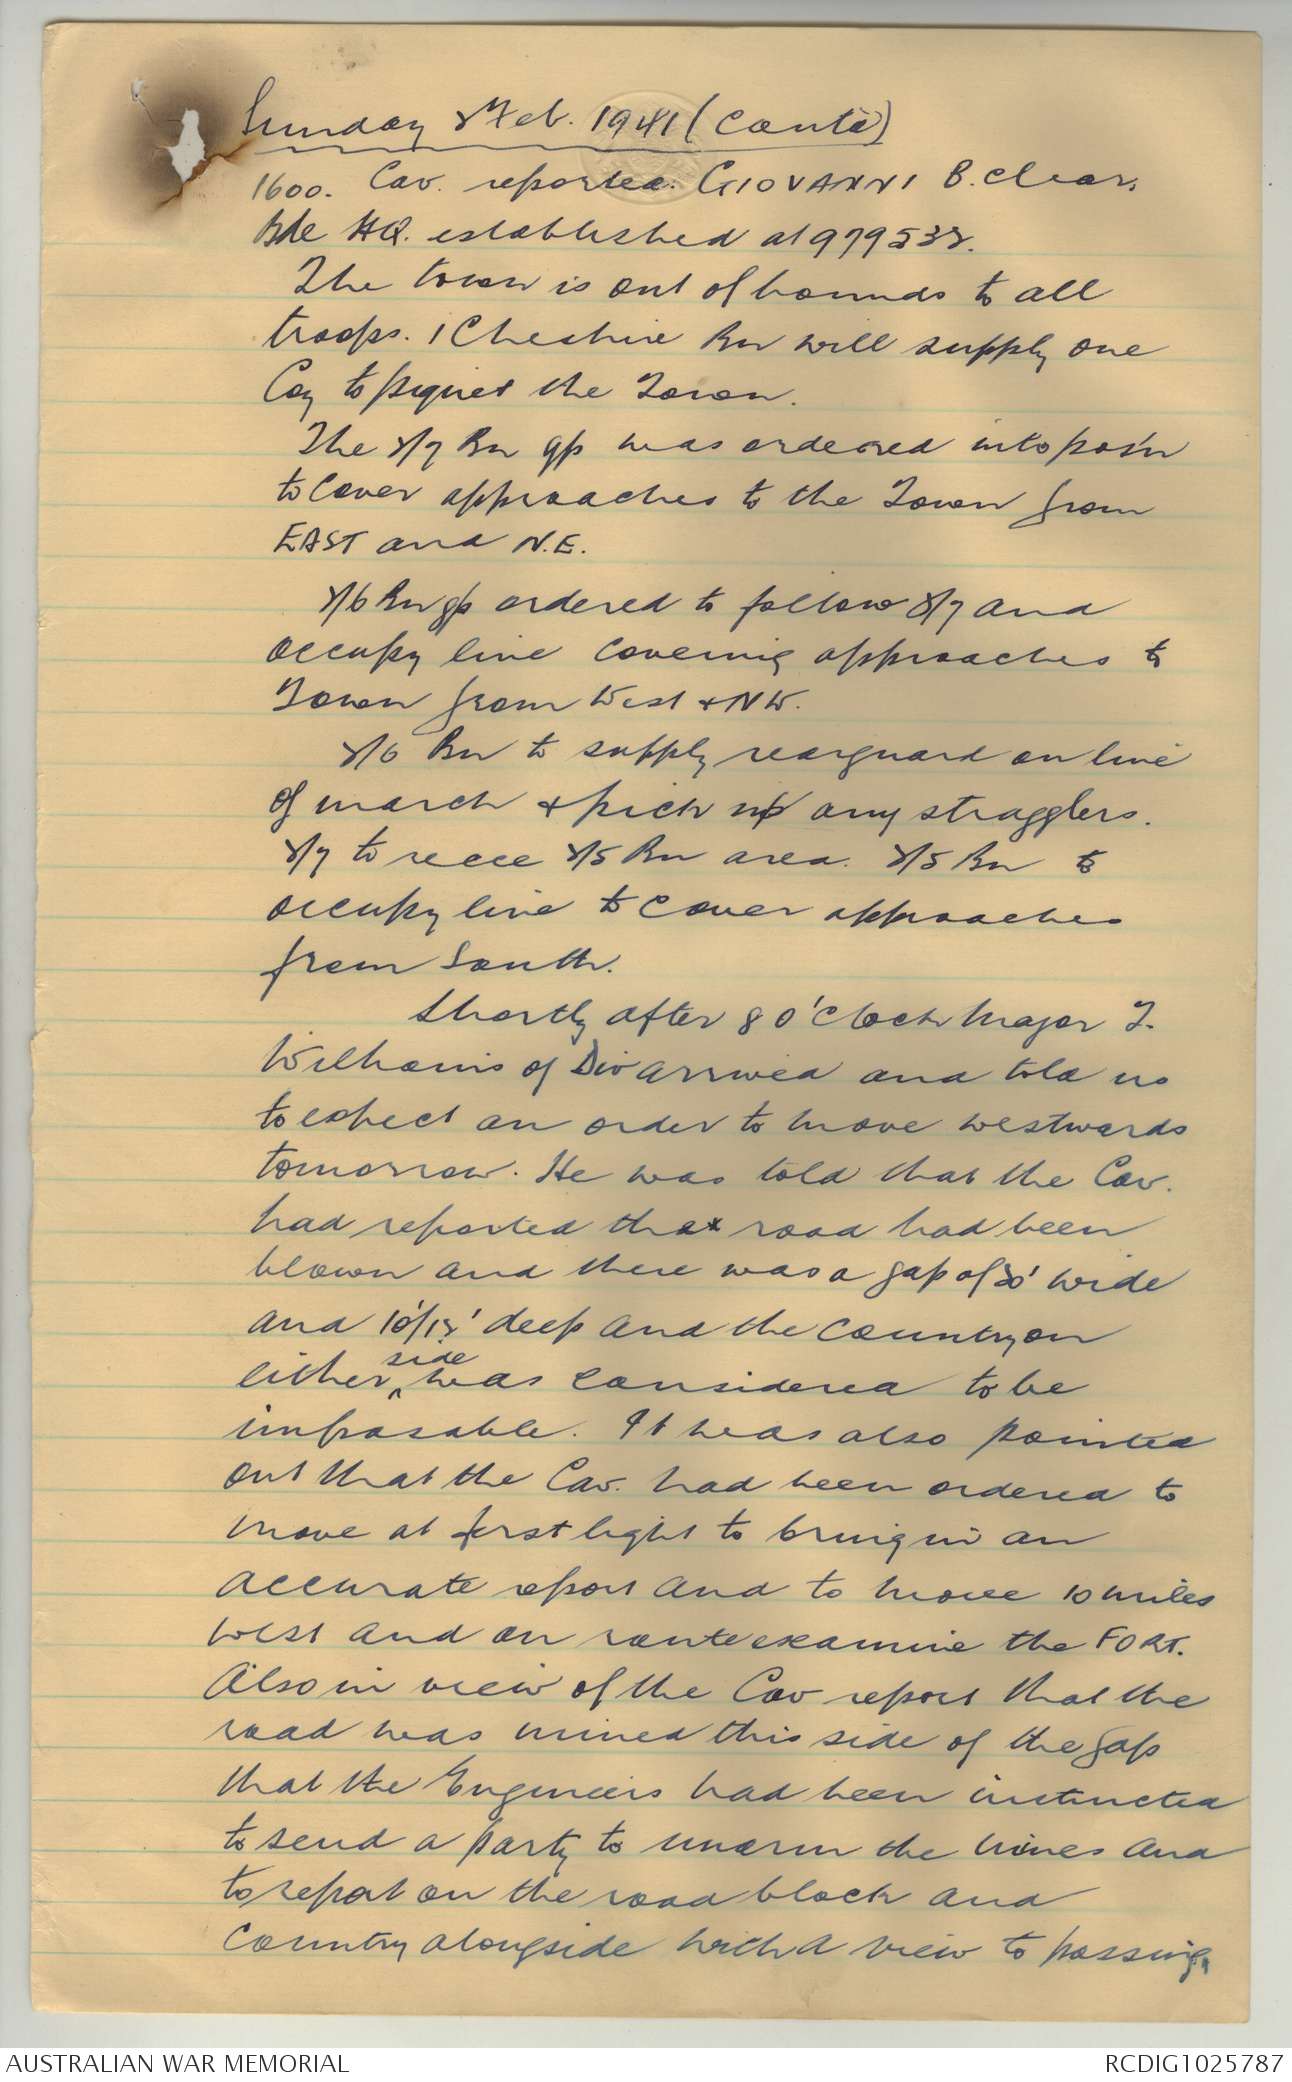 Sunday 2 Feb. 1941 (Cont'd)
1600. Cav. reported. GIOVANNI B. clear.
Bde HQ. established at 979532.
The town is out of bounds to all
troops. 1 Cheshire Bn will supply one
Coy to piquet the Town.
The 2/7 Bn gp was ordered into pos'n
to cover approaches to the Town from
EAST and N.E.
2/6 Bn gp ordered to follow 2/7 and
occupy line covering approaches to
Town from West & NW.
2/6 Bn to supply rearguard on line
of march & pick up any stragglers.
2/7 to recce 2/5 Bn area. 2/5 Bn to
occupy line to cover approaches
from South.
Shortly after 8 O'Clock Major T.
Williams of Div arrived and told us
to expect an order to move westwards
tomorrow. He was told that the Cav.
had reported that road had been
blown and there was a gap of 30' wide
and 10'/12' deep and the country on
either side was considered to be
impasable. It was also pointed
out that the Cav. had been ordered to
move at first light to bring in an
accurate report and to move 10 miles
west and on route examine the FORT.
Also in view of the Cav report that the
road was mined this side of the gap
that the Engineers had been instructed
to send a party to unarm the mines and
to report on the road block and
Country alongside with a view to passing
AUSTRALIAN WAR MEMORIAL
RCDIG1025787